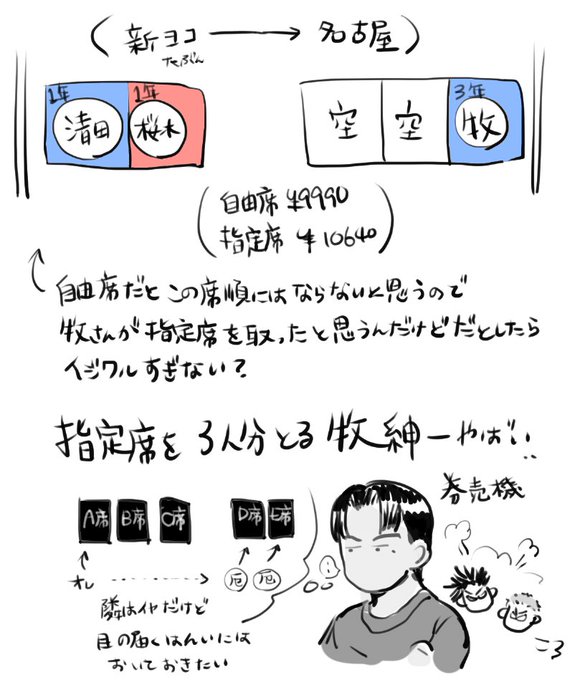 (新ヨコ → 名古屋)
たぶん
1年 1年 3年
清田 桜木 空 空 牧
自由席 ¥9990
指定席 ¥10640
自由席だとこの席順にはならないと思うので
牧さんが指定席を取ったと思うんだけどだとしたら
イジワルすぎない?
指定席を3人分とる牧紳一やば!!
券売機
A席 B席 C席 D席 E席
オレ
隣はイヤだけど
目の届くはんいには
おいておきたい